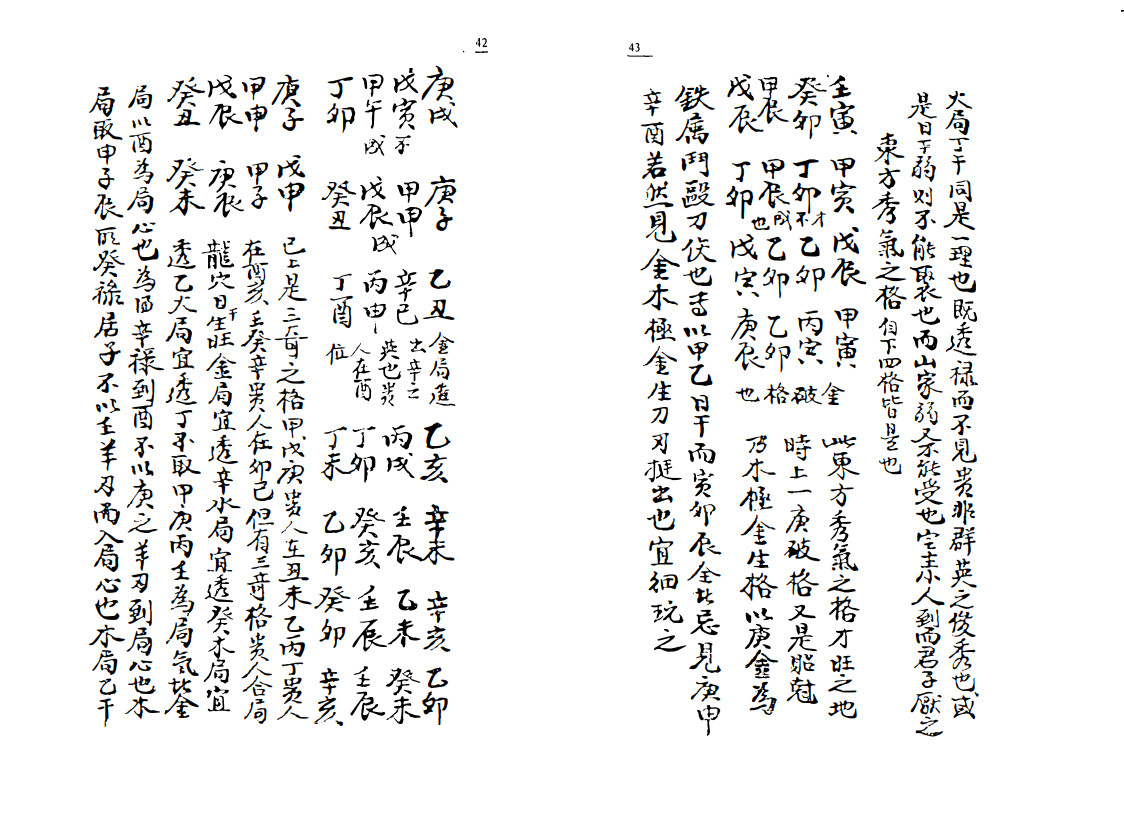 42
庚戌 庚子 乙丑 金局進 乙亥 辛未 辛亥 乙卯
戊寅不 甲申 辛巳 出辛之 丙戌 壬辰 乙未 癸未
甲午成 戊辰成 丙申 英也貴人在酉 丁卯 癸亥 壬辰 壬辰
丁卯 癸丑 丁酉 位 丁未 乙卯 癸卯 辛亥
庚子 戊申 已上是三奇之格甲戊庚貴人在丑未乙丙丁貴人
甲申 甲子 在酉亥壬癸辛貴人在卯巳但有三奇格貴人合局
戊辰 庚辰 龍穴日干生旺金局宜透辛水局宜透癸木局宜
癸丑 癸未 透乙火局宜透丁不取甲庚丙壬為局氣比金
局以酉為局心也為酉辛祿到酉不以庚之羊刃到局心也水
局取申子辰所癸祿居子不以壬羊刃而入局心也木局乙干
43
火局丁干同是一理也既透祿而不見貴非群英之俊秀也或
是日干弱則不能聚也而山家弱又不能受也定主小人到而君子厭之
東方秀氣之格 自下四格皆是也
壬寅 甲寅 戊辰 甲寅 金 此東方秀氣之格才旺之地
癸卯 丁卯不才 乙卯 丙寅 破 時上一庚破格又是貽尅
甲辰 甲辰成也 乙卯 乙卯 格 乃木極金生格以庚金為
戊辰 丁卯 戊寅 庚辰 也
鉄属鬥毆刀伏也 以甲乙日干而寅卯辰全比忌見庚申
辛酉若然見金木極金生刀刃挺出也宜細玩之